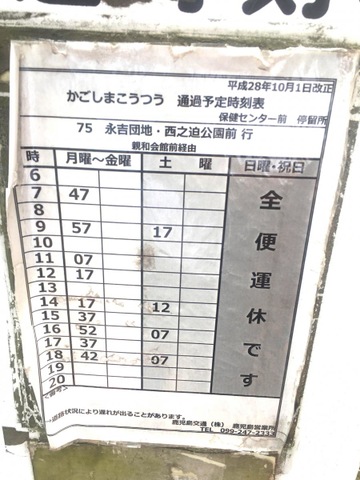 平成28年10月1日改正
かごしまこうつう 通過予定時刻表
保健センター前 停留所
75 永吉団地・西之迫公園前 行
親和会館前経由
時 月曜～金曜 土 曜 日曜・祝日
6
7 47
8
9 57 17
10
11 07
12 17
13
14 17 12
15 37
16 52 07
17 37
18 42 07
19
20
全便運休です
道路状況により遅れが出ることがあります。
鹿児島交通（株） 鹿児島営業所
TEL 099-247-2333